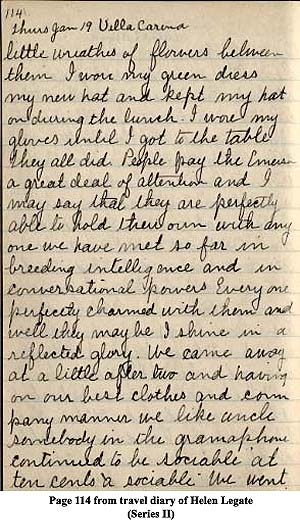 114
Thurs Jan 19 Villa Carina
little wreathes of flowers between
them I wore my green dress
my new hat and kept my hat
on during the lunch. I wore my
gloves until I got to the table
they all did. People pay the Emerson
a great deal of attention and I
may say that they are perfectly
able to hold their own with any
one we have met so far in
breeding intelligence and in
conversational powers Every one
perfectly charmed with them and
well they may be I shine in a
reflected glory. We came away
at a little after two and having
on our best clothes and com
pany manner we like uncle
somebody in the gramaphone
continued to be sociable "at
ten cents a sociable" We went
Page 114 from travel diary of Helen Legate
(Series II)